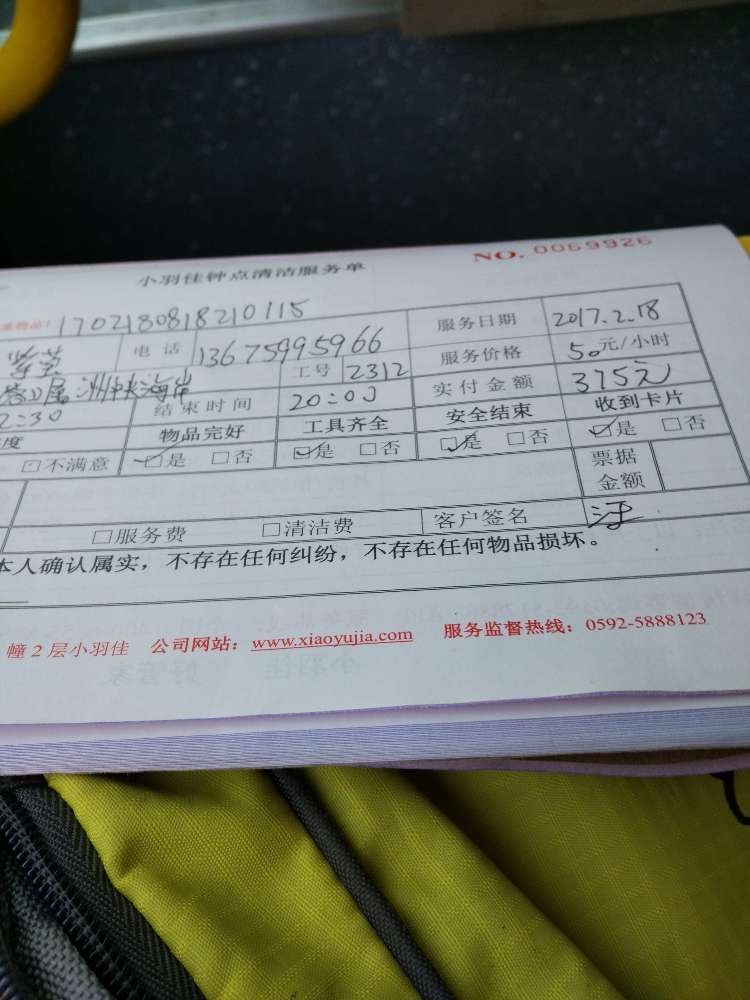 小羽佳钟点清洁服务单 NO. 0069926
物品: 170218081821 0115 服务日期 2017.2.18
紫芸 电话 13675995966 服务价格 50元/小时
洲中央海岸 工号 2312 实付金额 375元
2:30 结束时间 20:00 安全结束 收到卡片
度 物品完好 工具齐全 是 否 是 否
不满意 是 否 是 否 票据金额
服务费 清洁费 客户签名
本人确认属实，不存在任何纠纷，不存在任何物品损坏。
幢2层小羽佳 公司网站：www.xiaoyujia.com 服务监督热线：0592-5888123